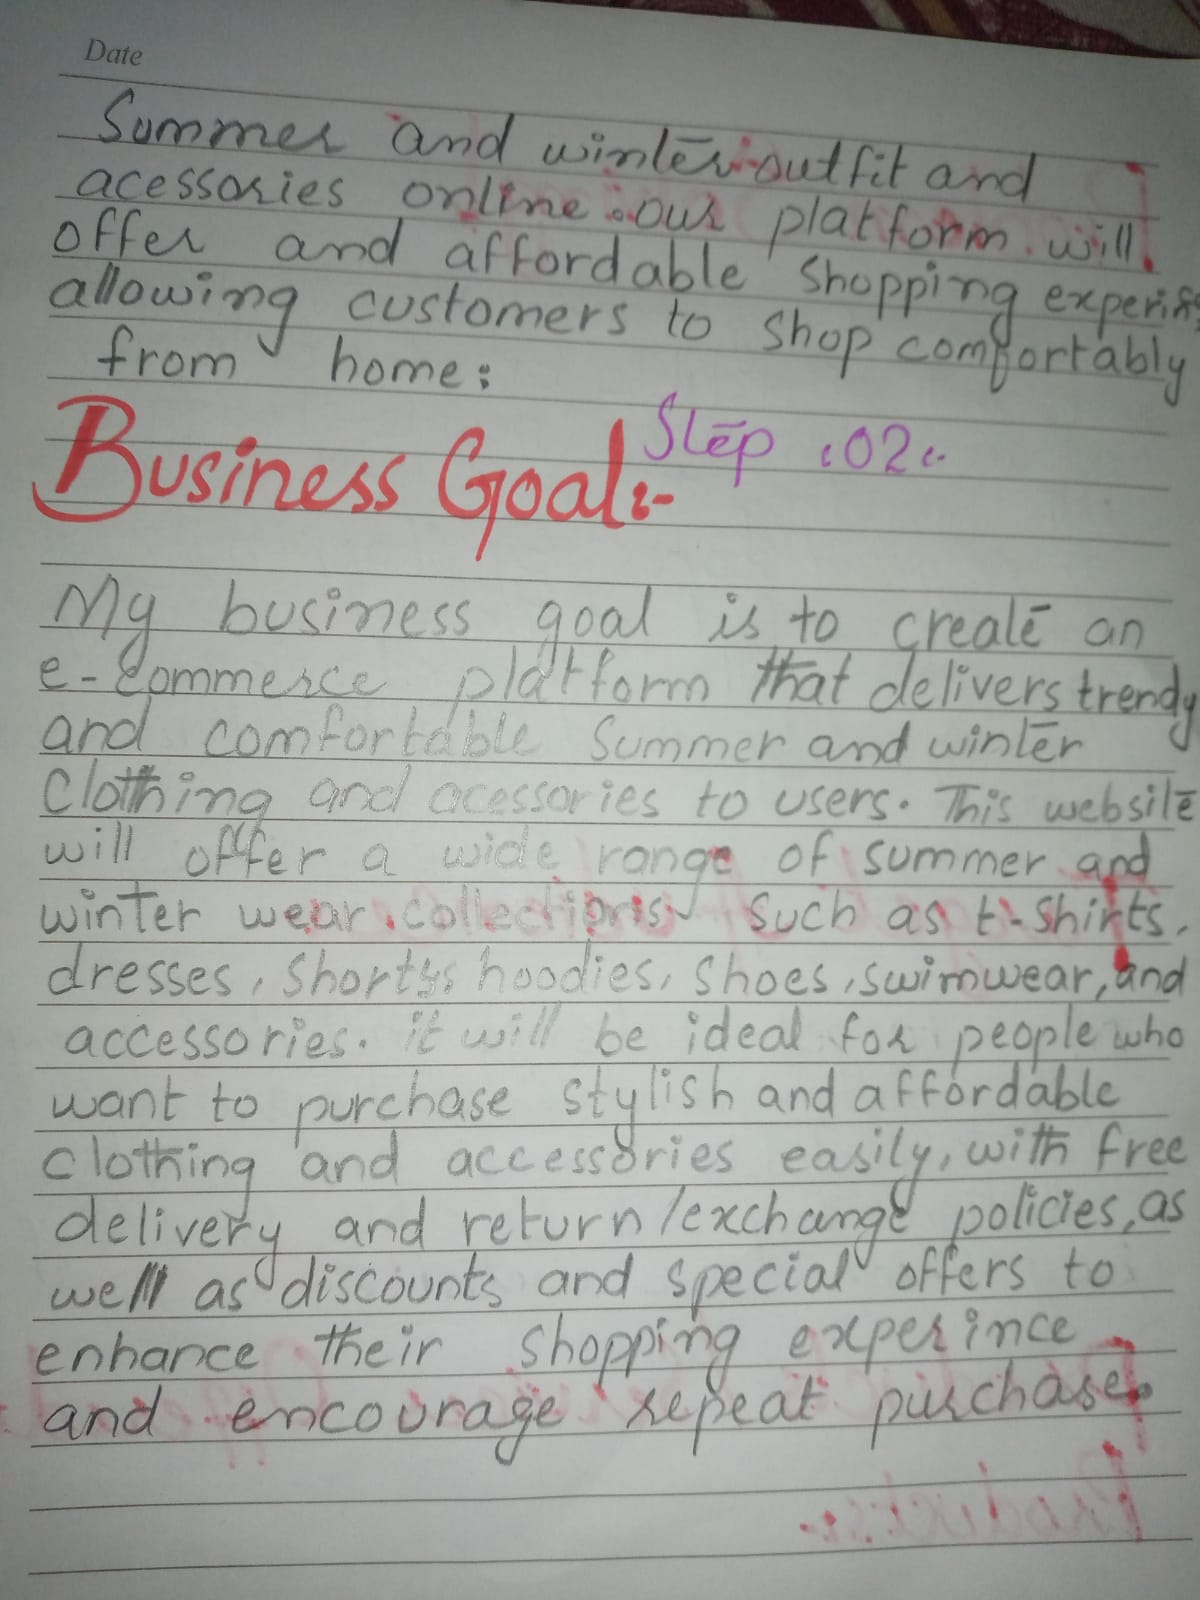 Date
Summer and winter outfit and
acessories online. our platform will
offer and affordable shopping
allowing customers to shop comfortably
from home:
Business Goal:- Step :02:
My business goal is to create an
e-commerce platform that delivers trendy
and comfortable Summer and winter
Clothing and acessories to users. This website
will offer a wide range of summer and
winter wear collections such as t-shirts,
dresses, shorts, hoodies, shoes, swimwear, and
accessories. it will be ideal for people who
want to purchase stylish and affordable
clothing and accessories easily, with free
delivery and return/exchange policies, as
well as discounts and special offers to
enhance their shopping experince
and encourage repeat purchase.